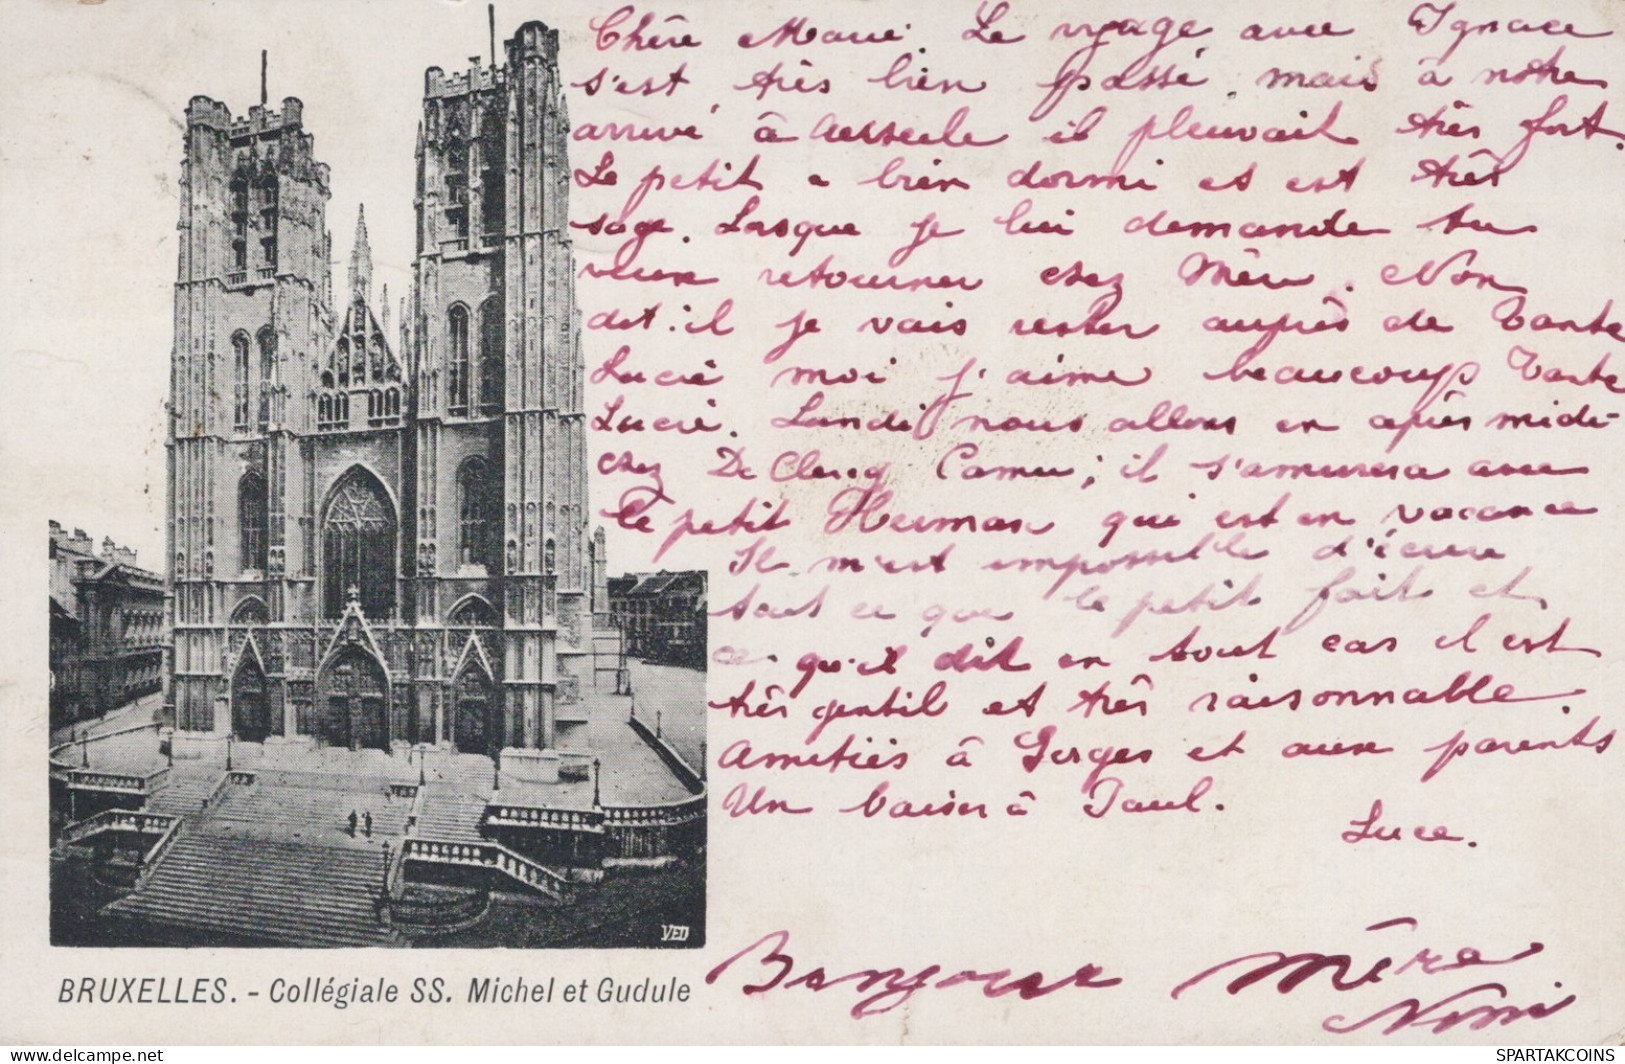 Chère Marie. Le voyage avec Ignace
s'est très bien passé, mais à notre
arrivé à il pleuvait très fort.
Le petit a bien dormi et est très
sage. Lorsque je lui demande tu
veux retourner chez Mère. Non
dit-il je vais rester auprès de Tante
Lucie moi j'aime beaucoup Tante
Lucie. Lundi nous allons en après midi
chez De Clercq Camu; il s'amusera avec
le petit Herman qui est en vacance
Il m'est impossible d'écrire
tout ce que le petit fait et
ce qu'il dit en tout cas il est
très gentil et très raisonnable.
Amitiés à Serges et aux parents
Un baiser à Paul.
Luce.
Bonjour Mère
Noni
VED
BRUXELLES. - Collégiale SS. Michel et Gudule
www.delcampe.net
SPARTAKCOINS